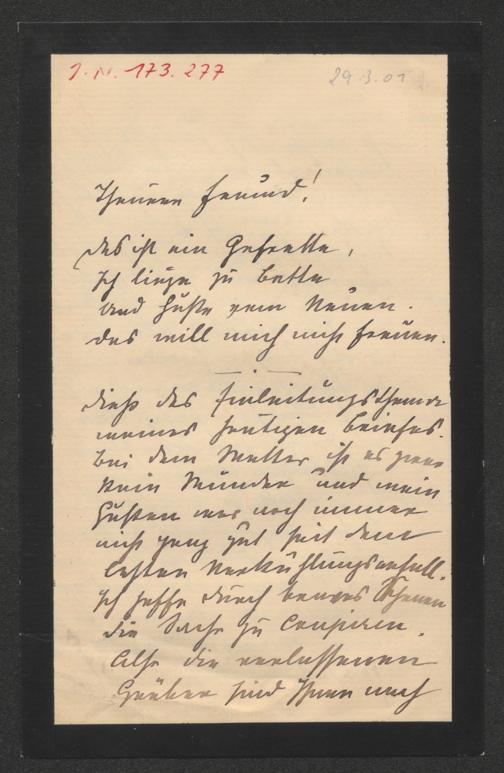 J. N. 173.277
29.3.01
Theurer Freund!
Das ist ein Gefrette,
Ich liege zu Bette
Und huste vom Neuen.
Das will mich nicht freuen.
Dieß das Einleitungsthema
meines heutigen Briefes.
Bei dem Wetter ist es zwar
kein Wunder und mein
Husten war noch immer
nicht ganz gut seit dem
letzten Verkühlungsanfall.
Ich hoffe durch braves
die Sache zu coupiren.
Also die verlassenen
Gräber sind Ihnen nach